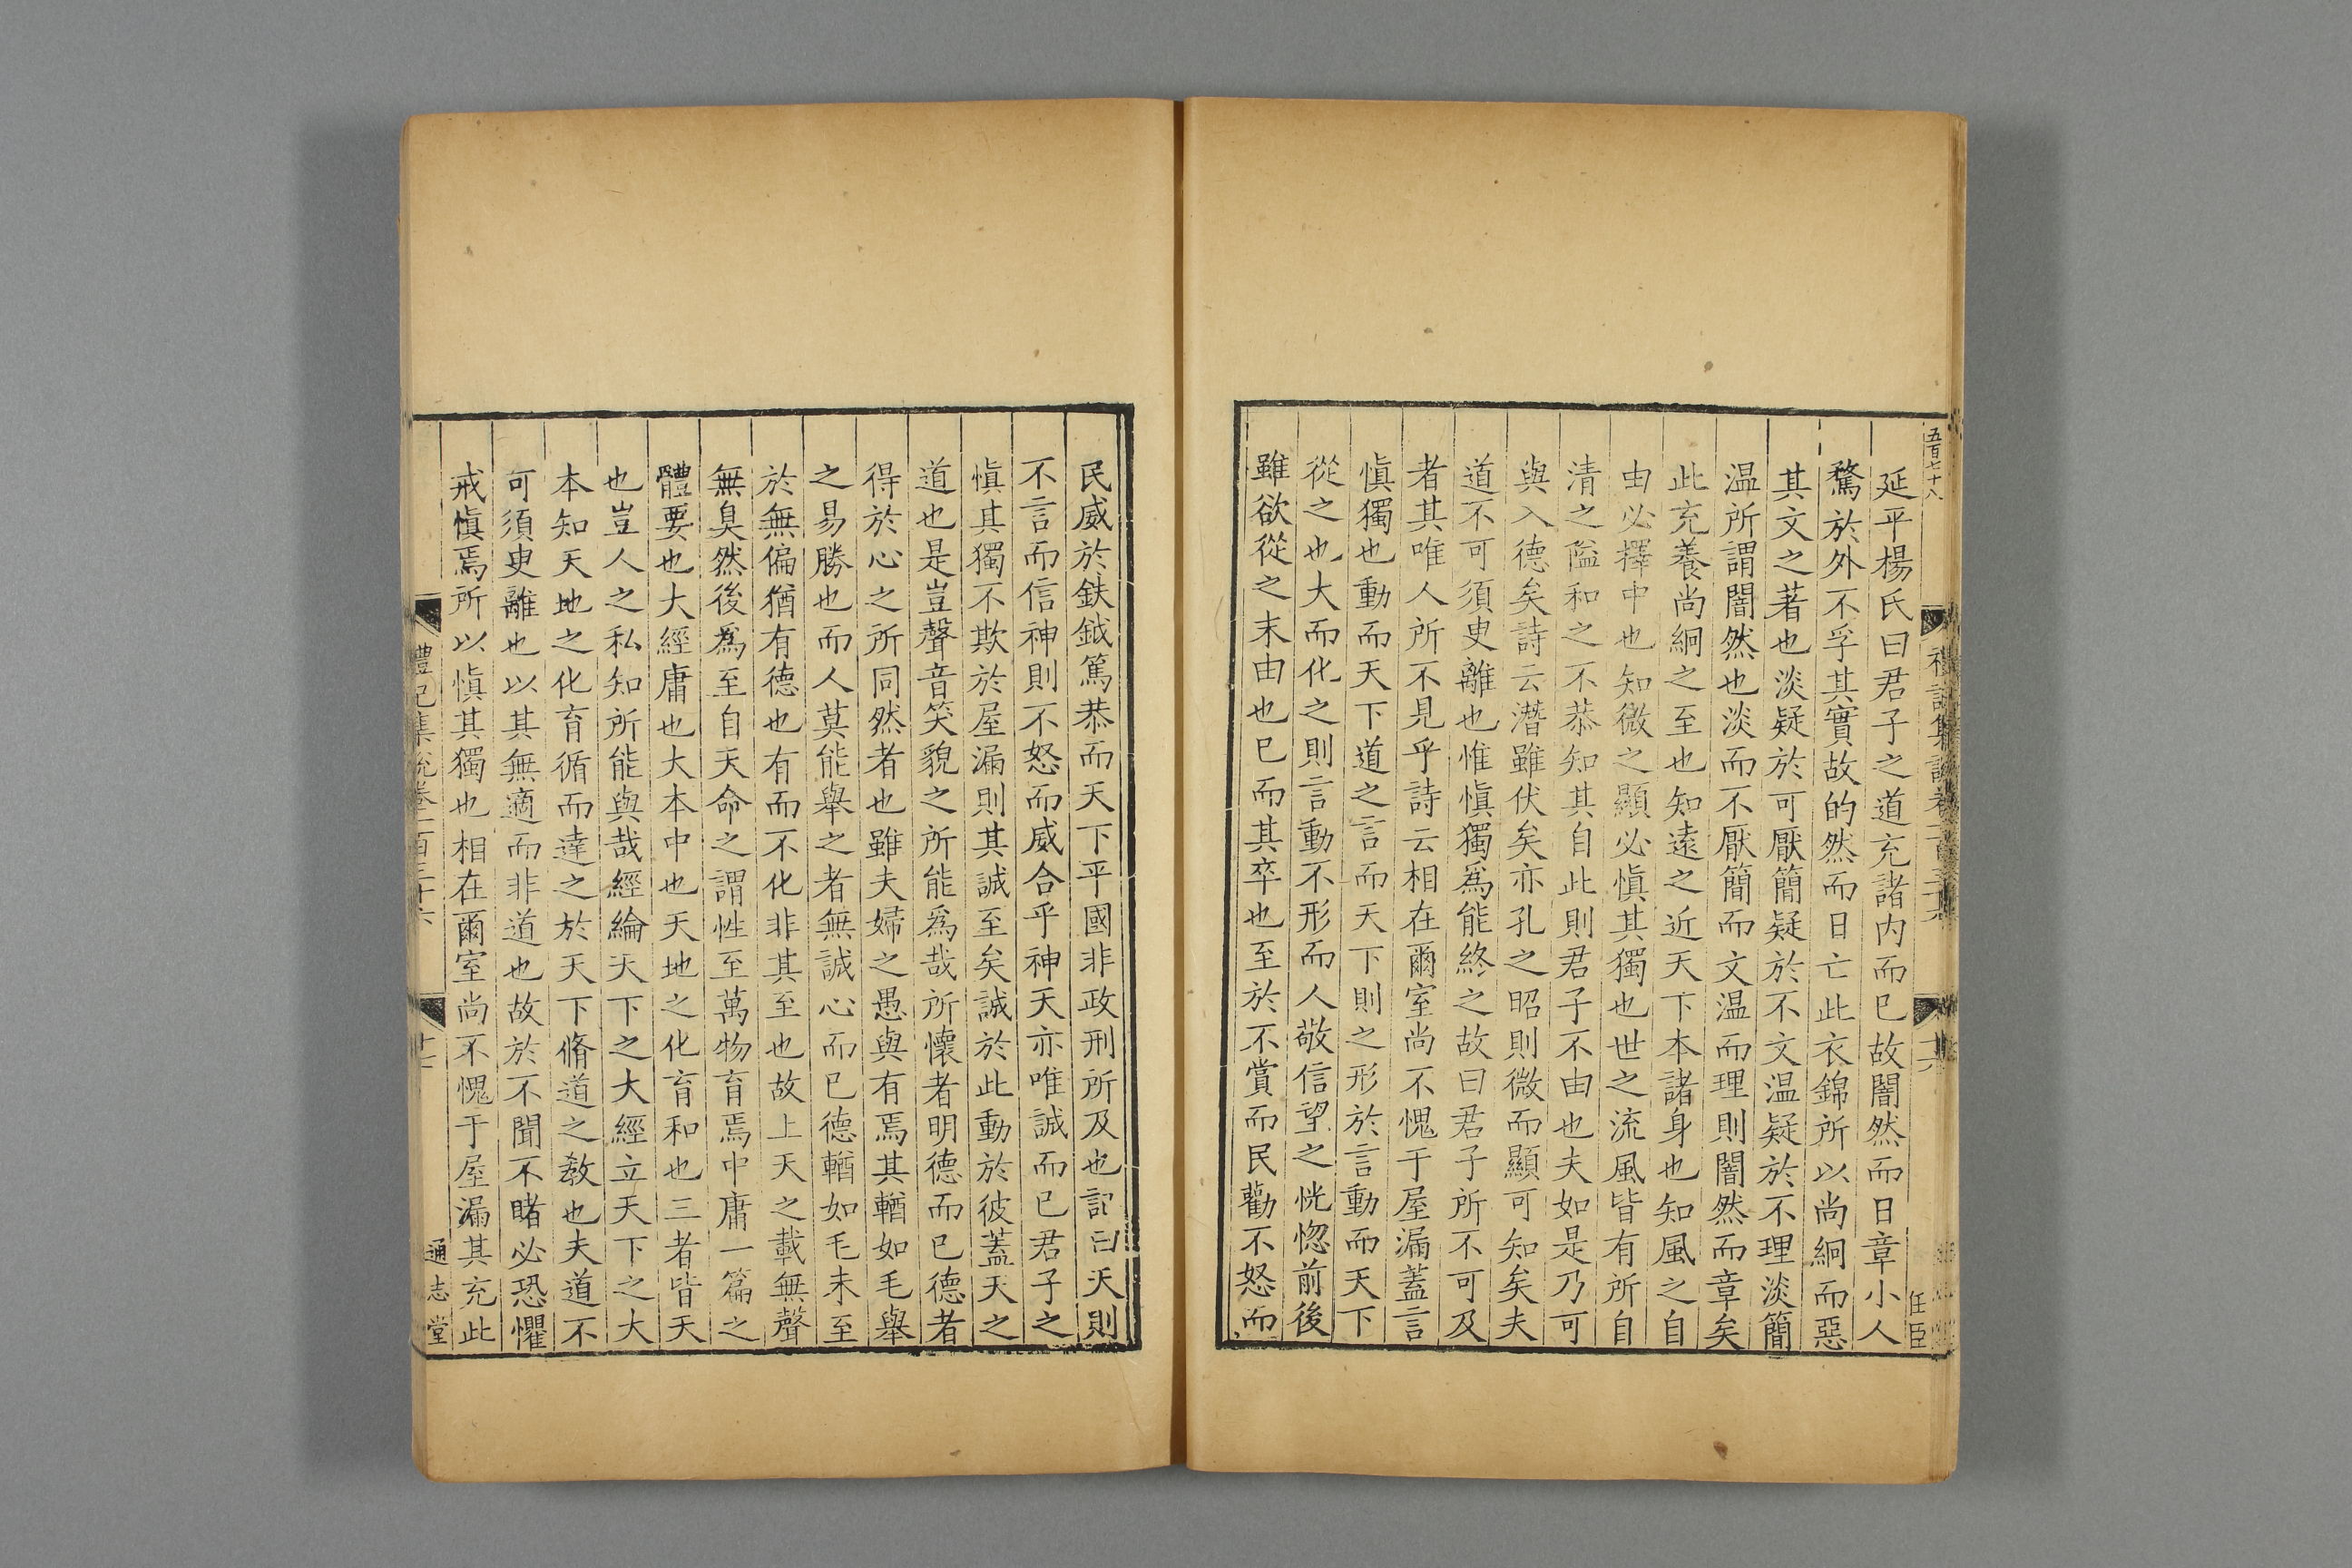 五百七十八
任臣
延平楊氏曰君子之道充諸内而已故闇然而日章小人
騖於外不孚其實故的然而日亡此衣錦所以尚絅而惡
其文之著也淡疑於可厭簡疑於不文温疑於不理淡簡
温所謂闇然也淡而不厭簡而文温而理則闇然而章矣
此充養尚絅之至也知遠之近天下本諸身也知風之自
由必擇中也知微之顯必慎其獨也世之流風皆有所自
清之隘和之不恭知其自此則君子不由也夫如是乃可
與入德矣詩云潛雖伏矣亦孔之昭則微而顯可知矣夫
道不可須臾離也惟慎獨爲能終之故曰君子所不可及
者其唯人所不見乎詩云相在爾室尚不愧于屋漏蓋言
慎獨也動而天下道之言而天下則之形於言動而天下
從之也大而化之則言動不形而人敬信望之恍惚前後
雖欲從之末由也已而其卒也至於不賞而民勸不怒而
民威於鈇鉞篤恭而天下平國非政刑所及也記曰天則
不言而信神則不怒而威合乎神天亦唯誠而已君子之
慎其獨不欺於屋漏則其誠至矣誠於此動於彼蓋天之
道也是豈聲音笑貌之所能爲哉所懷者明德而已德者
得於心之所同然者也雖夫婦之愚與有焉其輶如毛舉
之易勝也而人莫能舉之者無誠心而已德輶如毛未至
於無偏猶有德也有而不化非其至也故上天之載無聲
無臭然後爲至自天命之謂性至萬物育焉中庸一篇之
體要也大經庸也大本中也天地之化育和也三者皆天
也豈人之私知所能與哉經綸天下之大經立天下之大
本知天地之化育循而達之於天下脩道之教也夫道不
可須臾離也以其無適而非道也故於不聞不睹必恐懼
戒慎焉所以慎其獨也相在爾室尚不愧于屋漏其充此
禮記集說卷一百三十六
通志堂